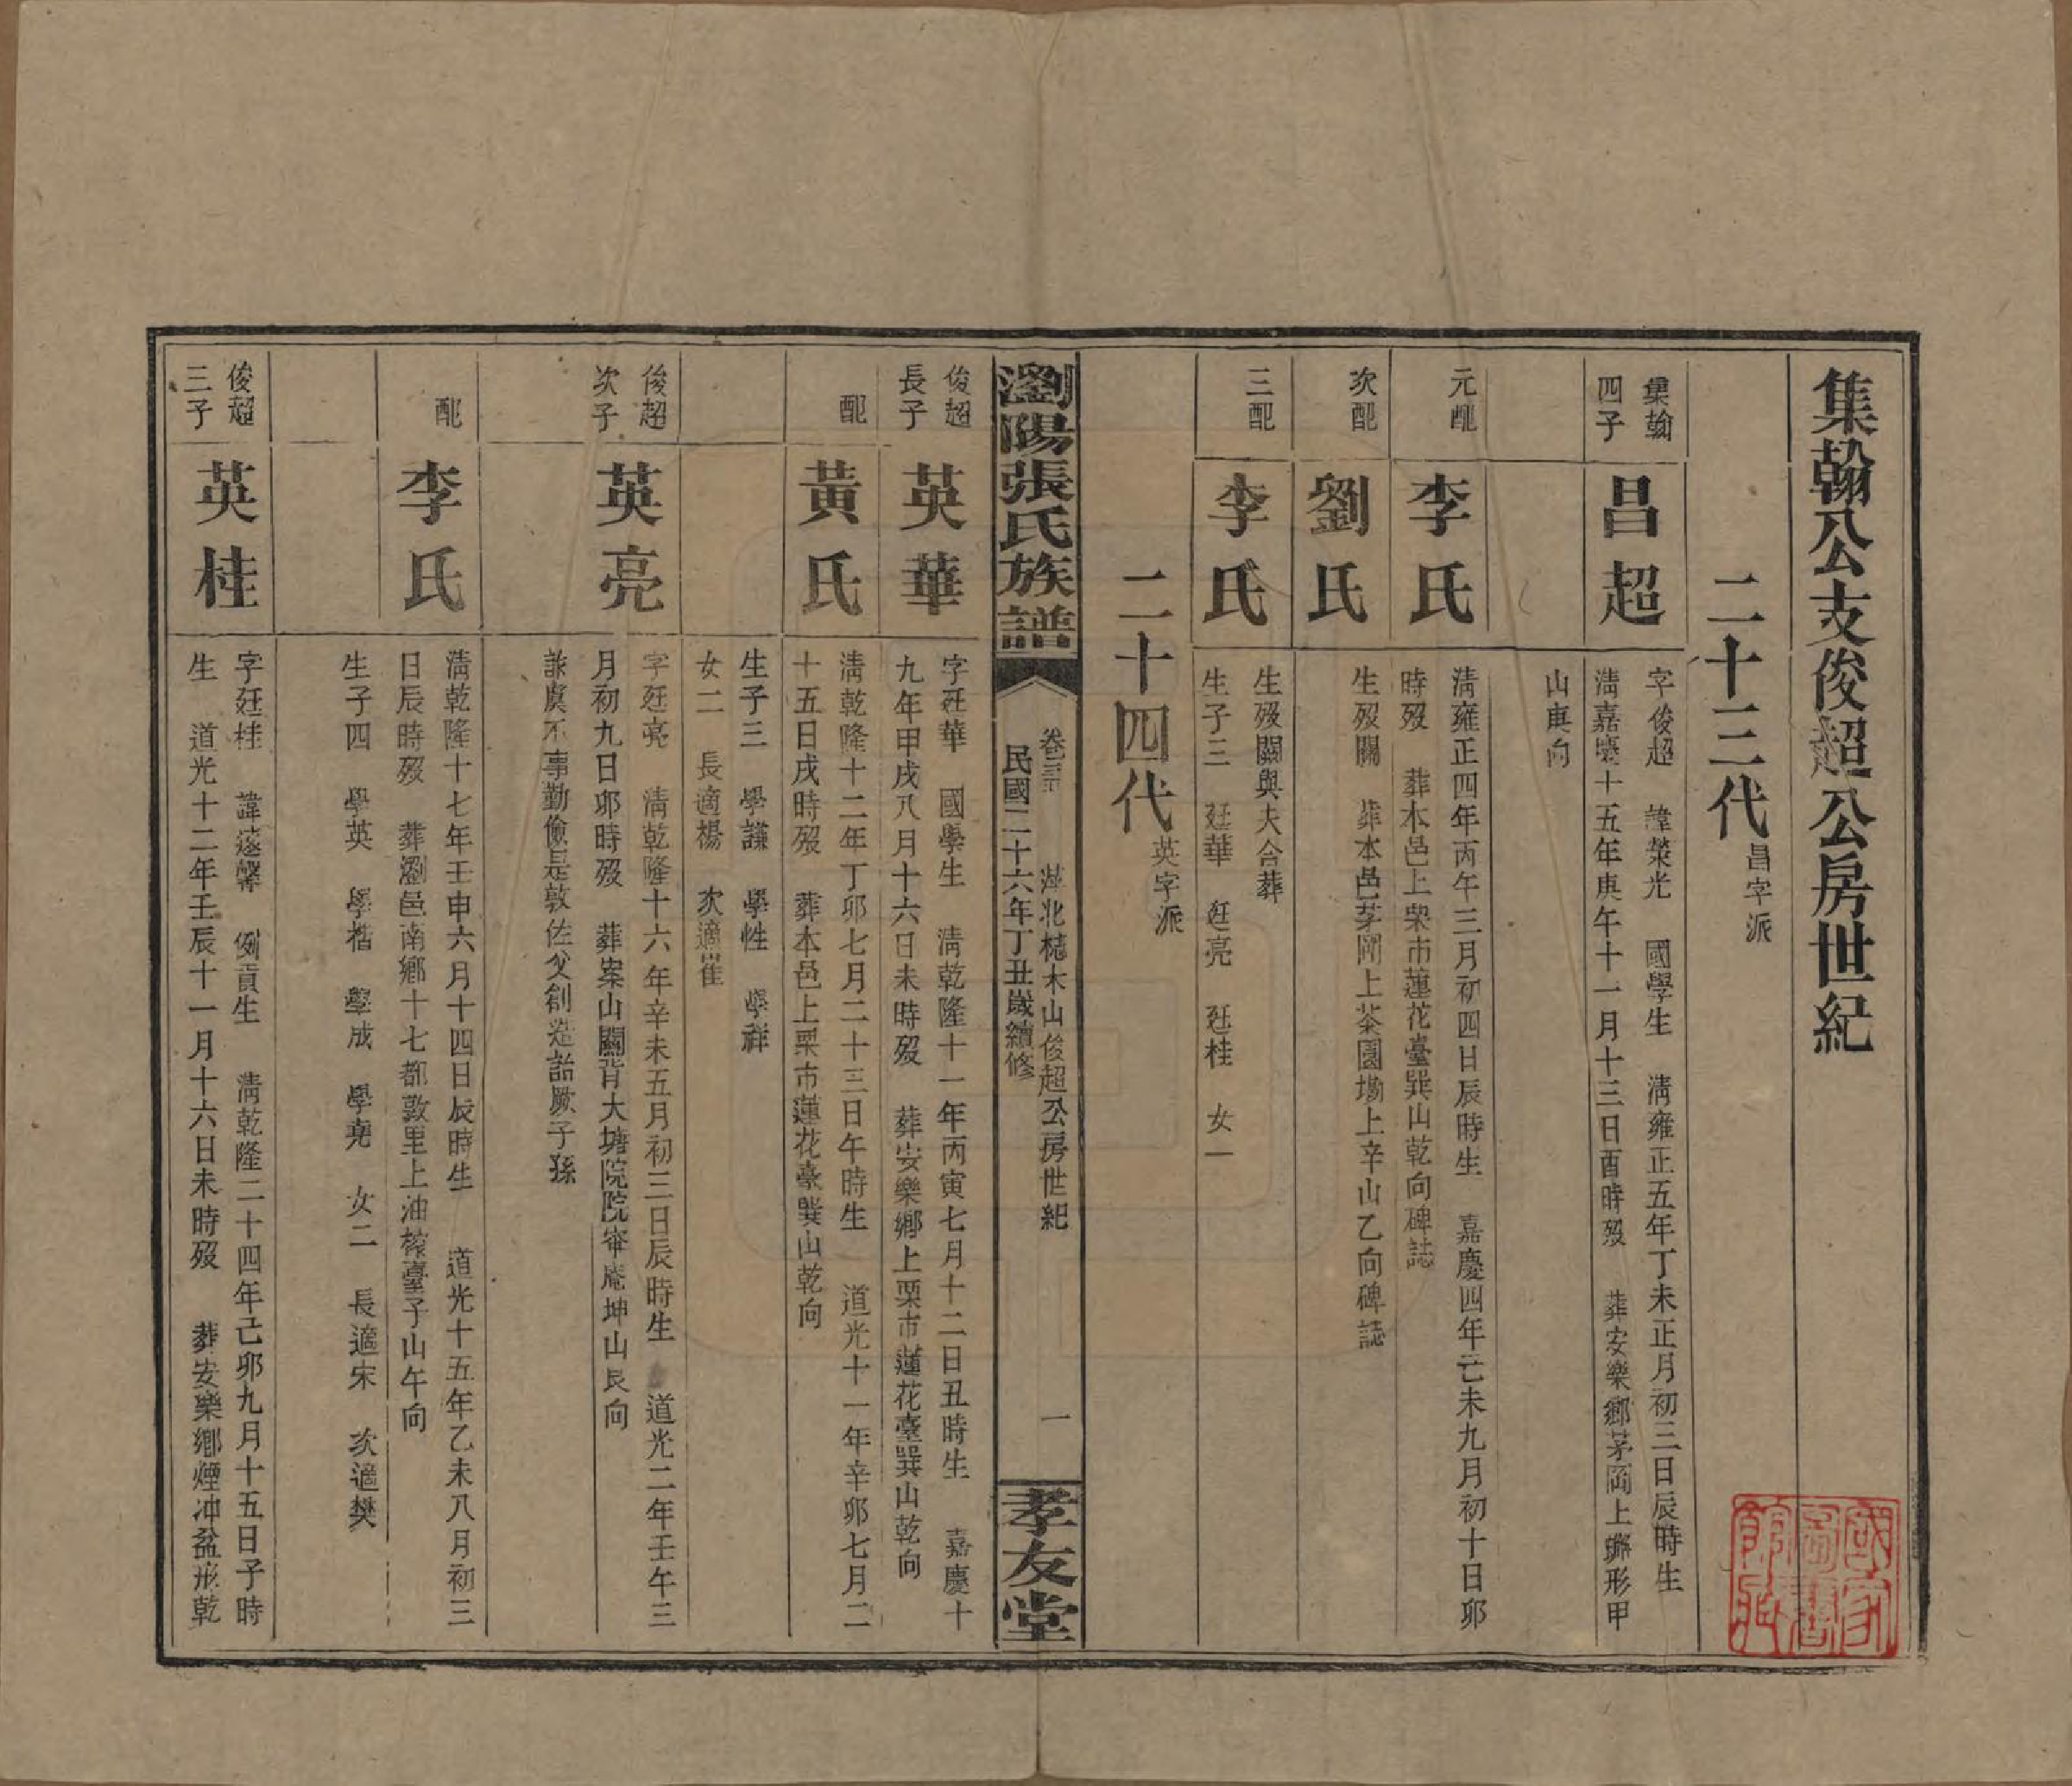 集翰公支俊超公房世紀
二十三代昌字派
集翰
四子
昌超
字俊超 諱榮光 國學生 淸雍正五年丁未正月初三日辰時生
淸嘉慶十五年庚午十一月十三日酉時歿 葬安樂鄉茅岡上獅形甲
山庚向
元配
李氏
淸雍正四年丙午三月初四日辰時生 嘉慶四年己未九月初十日卯
時歿 葬本邑上栗市蓮花臺巽山乾向碑誌
次配
劉氏
生歿闕 葬本邑茅岡上茶園塲上辛山乙向碑誌
三配
李氏
生歿闕與夫合葬
生子三 廷華 廷亮 廷桂 女一
二十四代英字派
瀏陽張氏族譜
卷 萍北 木山俊超公房世紀
民國二十六年丁丑歲續修
一
孝友堂
俊超
長子
英華
字廷華 國學生 淸乾隆十一年丙寅七月十二日丑時生 嘉慶十
九年甲戌八月十六日未時歿 葬安樂鄉上栗市蓮花臺巽山乾向
配
黃氏
淸乾隆十二年丁卯七月二十三日午時生 道光十一年辛卯七月二
十五日戌時歿 葬本邑上栗市蓮花臺巽山乾向
生子三 學謙 學性 學祥
女二 長適楊 次適崔
俊超
次子
英亮
字廷亮 淸乾隆十六年辛未五月初三日辰時生 道光二年壬午三
月初九日卯時歿 葬案山關背大塘院院 庵坤山艮向
詠虞不事勤儉是敦佐父創造詒厥子孫
配
李氏
淸乾隆十七年壬申六月十四日辰時生 道光十五年乙未八月初三
日辰時歿 葬瀏邑南鄉十七都敦里上油榨臺子山午向
生子四 學英 學楷 學成 學堯 女二 長適宋 次適樊
俊超
三子
英桂
字廷桂 諱遂馨 例貢生 淸乾隆二十四年己卯九月十五日子時
生 道光十二年壬辰十一月十六日未時歿 葬安樂鄉煙冲盆形乾
國家圖書館藏